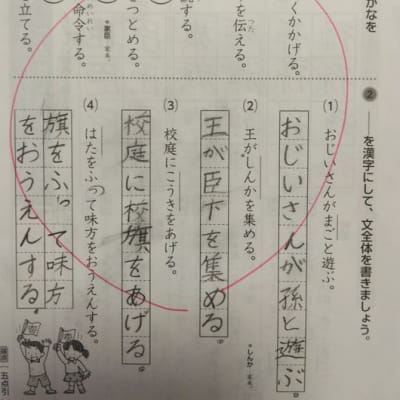 がなを
くかかげる。
を伝える。
つた
する。
*家臣 家来。
をつとめる。
命令する。
めいれい
立てる。
② ——を漢字にして、文全体を書きましょう。
(1) おじいさんがまごと遊ぶ。
おじいさんが孫と遊ぶ。
(2) 王がしんかを集める。
*しんか 家来。
王が臣下を集める。
(3) 校庭にこうきをあげる。
校庭に校旗をあげる。
(4) はたをふって味方をおうえんする。
旗をふって味方
をおうえんする。
五点引